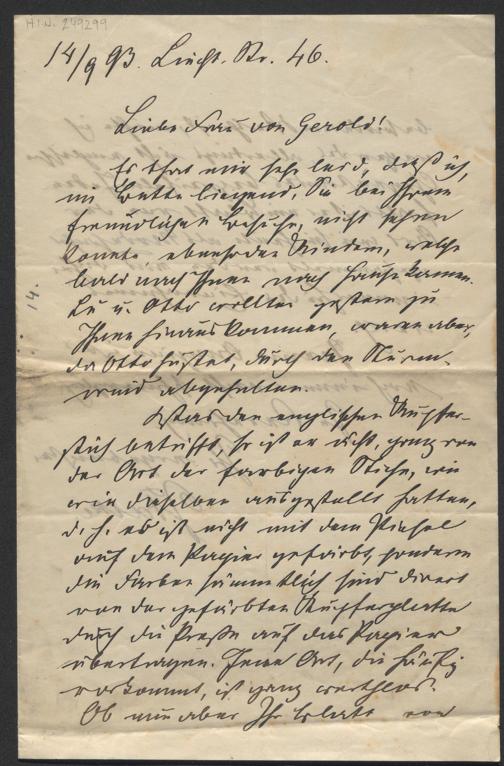 H.I.N. 249299
14/9 93. Liecht. Str. 46.
Liebe Frau von Gerold!
Es that mir sehr leid, daß ich,
im Bette liegend, Sie bei Ihrem
freundlichen Besuche, nicht sehen
konnte, ebenso den Kindern, welche
bald nach Ihnen nach Hause kamen.
Lu u. Otto wollten gestern zu
Ihnen hinauskommen, waren aber,
da Otto hustet, durch den Sturm-
wind abgehalten.
Was den englischen Kupfer-
stich betrifft, so ist er echt, ganz von
der Art der farbigen Stiche, wie
wir dieselben ausgestellt hatten,
d. h. es ist nicht mit dem Pinsel
auf dem Papier gefärbt, sondern
die Farben sämmtlich sind direct
von der gefärbten Kupferplatte
durch die Presse auf das Papier
übertragen. Jene Art, die häufig
vorkommt, ist ganz werthlos.
Ob nun aber Ihr Blatt von
14.